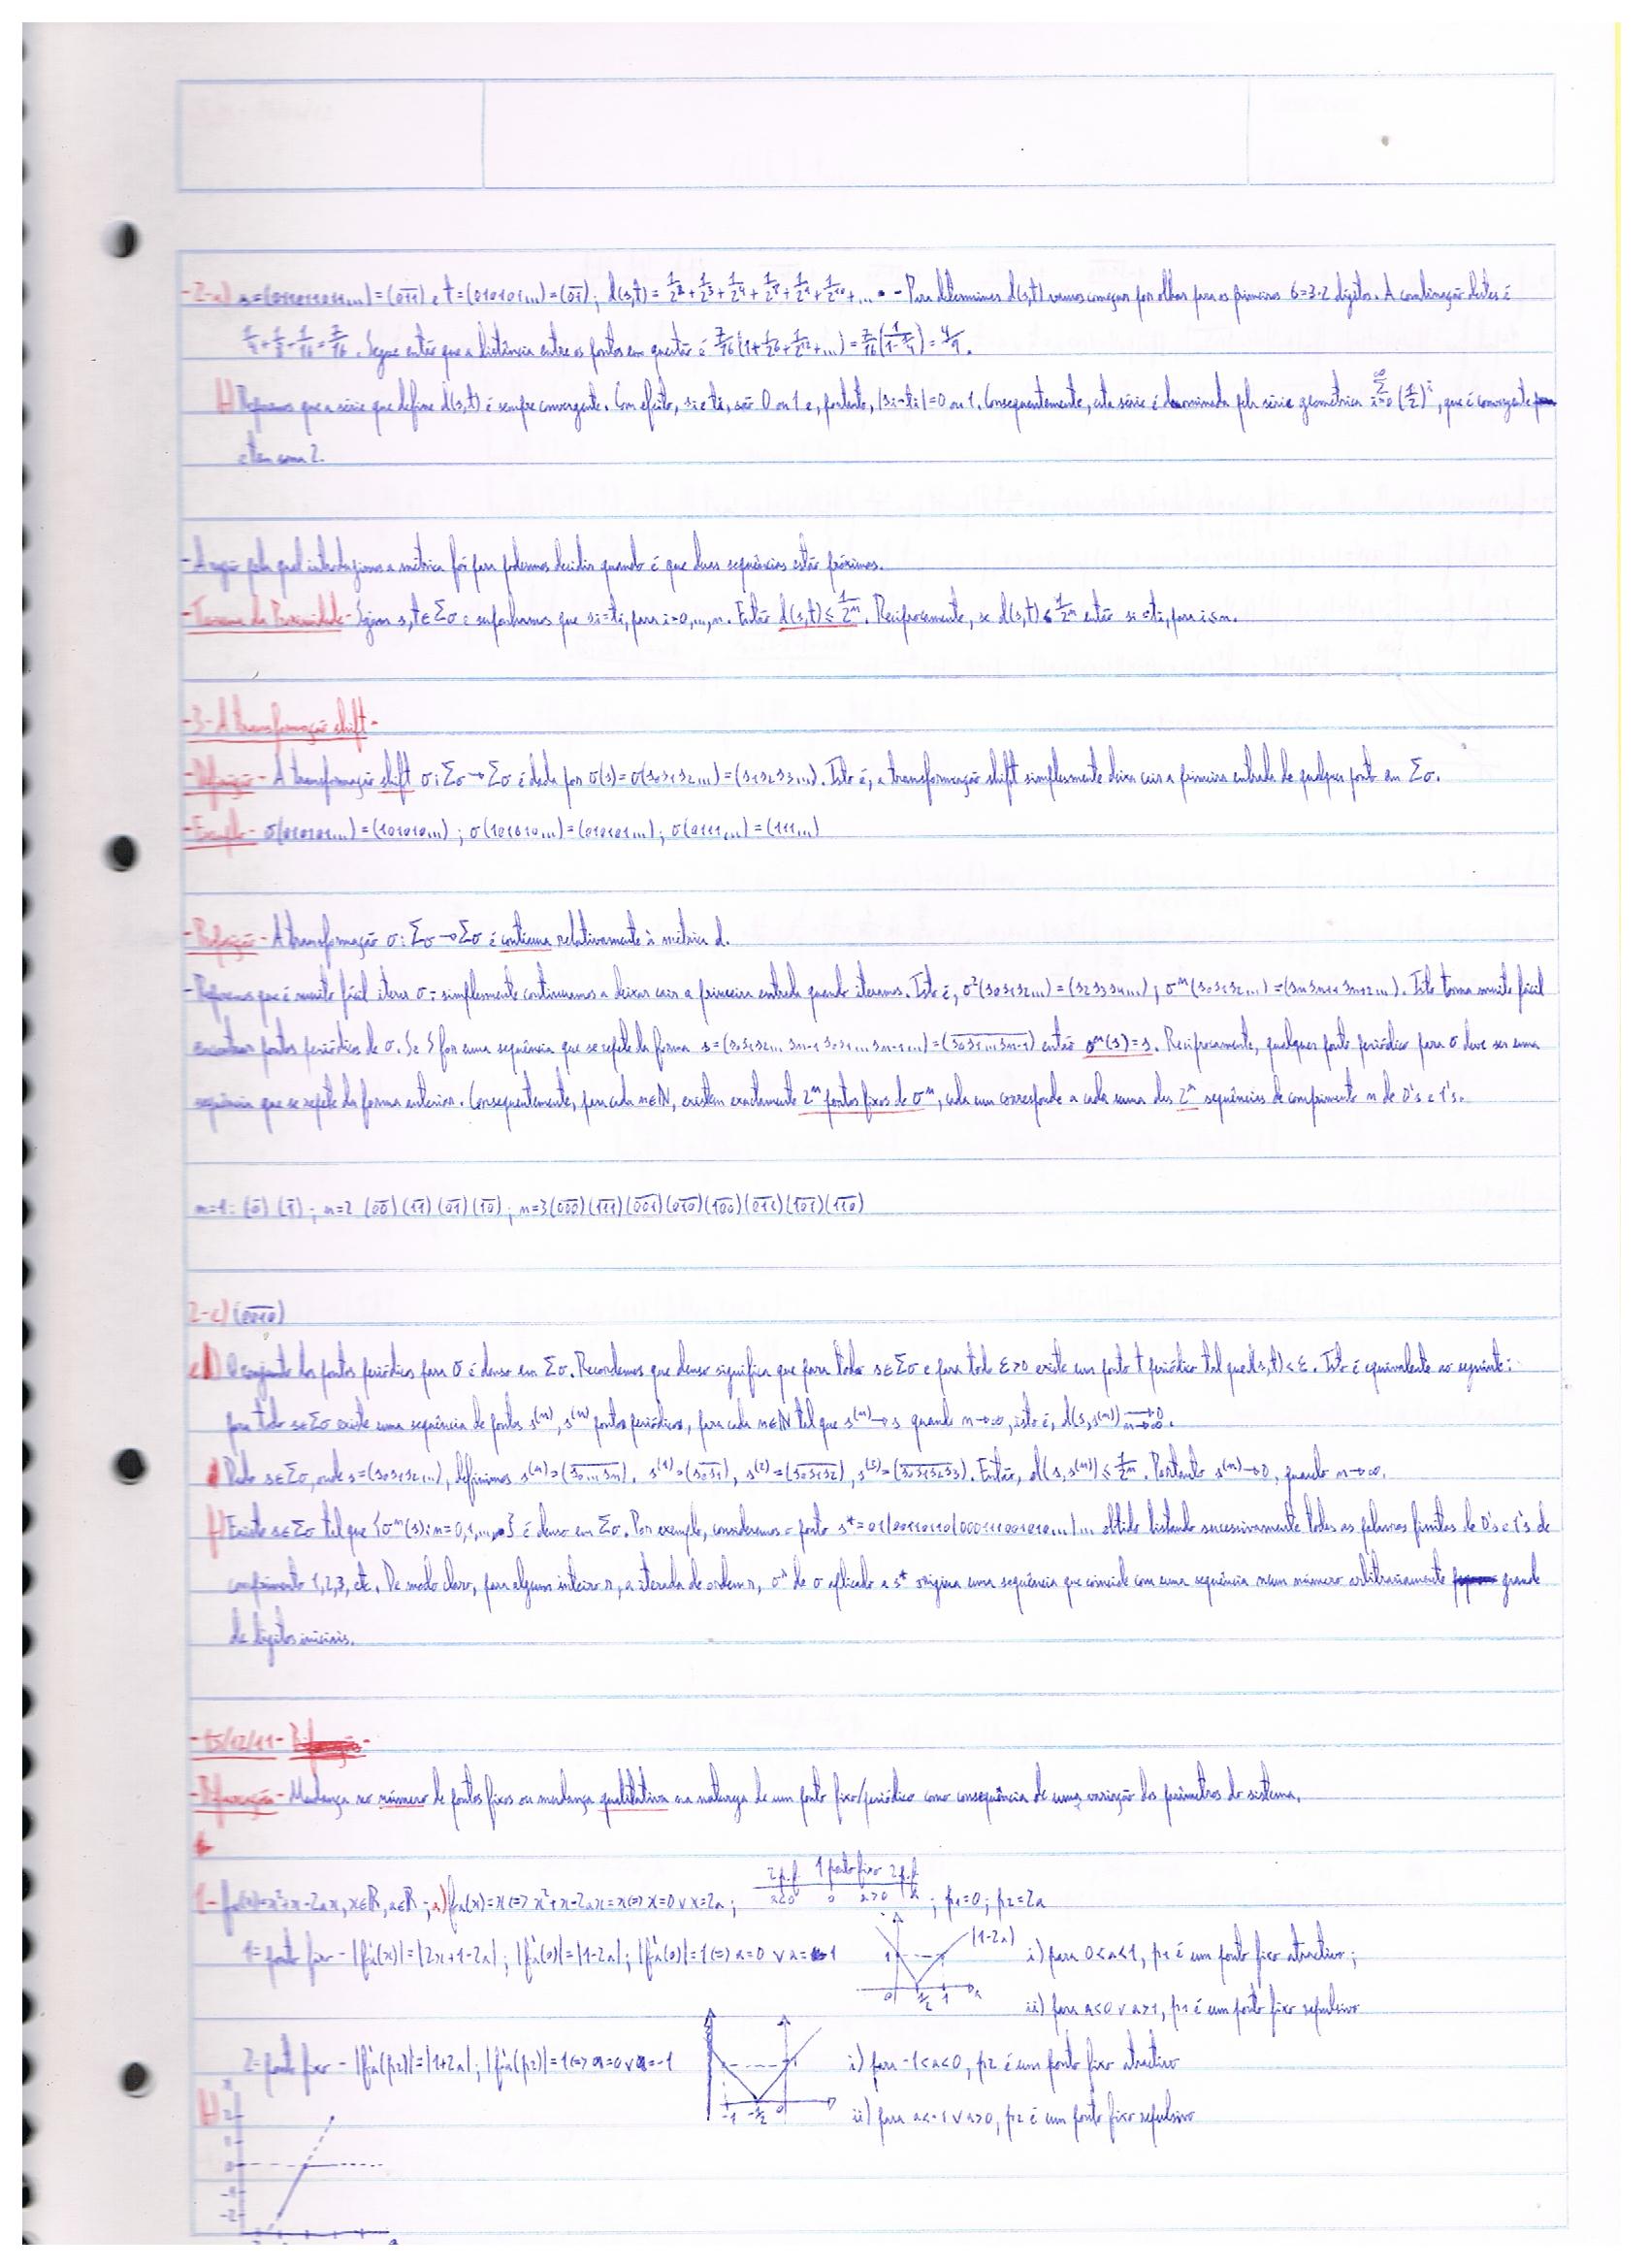 -2-a) s=(011011011...)=(\overline{011}) e t=(010101...)=(\overline{01}); d(s,t)=1/2²+1/2³+1/2⁴+1/2⁸+1/2⁹+1/2¹⁰+... - Para determinar d(s,t) vamos começar por olhar para os primeiros 6=3·2 dígitos. A combinação destes é
1/4+1/8+1/16=7/16. Segue então que a distância entre os pontos em questão é 7/16(1+1/2⁶+1/2¹²+...)=7/16(1/(1-1/64))=4/9.
Reparemos que a série que define d(s,t) é sempre convergente. Com efeito, si e ti, são 0 ou 1 e, portanto, |si-ti|=0 ou 1. Consequentemente, esta série é dominada pela série geométrica Σ_{i=0}^∞ (1/2)^i, que é convergente
e tem soma 2.
- A razão pela qual introduzimos a métrica foi para podermos decidir quando é que duas sequências estão próximas.
- Teorema da Proximidade - Sejam s,t∈Σσ e suponhamos que si=ti, para i=0,...,n. Então d(s,t)≤1/2ⁿ. Reciprocamente, se d(s,t)<1/2ⁿ então si=ti, para i≤n.
-3- A transformação shift-
- Definição - A transformação shift σ:Σσ→Σσ é dada por σ(s)=σ(s0s1s2...)=(s1s2s3...). Isto é, a transformação shift simplesmente deixa cair a primeira entrada de qualquer ponto em Σσ.
- Exemplo - σ(010101...)=(101010...); σ(101010...)=(010101...); σ(0111...)=(111...)
- Proposição - A transformação σ:Σσ→Σσ é contínua relativamente à métrica d.
- Reparemos que é muito fácil iterar σ - simplesmente continuamos a deixar cair a primeira entrada quando iteramos. Isto é, σ²(s0s1s2...)=(s2s3s4...); σⁿ(s0s1s2...)=(sn sn+1 sn+2...). Isto torna muito fácil
encontrar pontos periódicos de σ. Se s for uma sequência que se repete da forma s=(s0s1s2...sn-1 s0s1...sn-1...)=(\overline{s0s1...sn-1}) então σⁿ(s)=s. Reciprocamente, qualquer ponto periódico para σ deve ser uma
sequência que se repete da forma anterior. Consequentemente, para cada n∈ℕ, existem exactamente 2ⁿ pontos fixos de σⁿ, cada um corresponde a cada uma das 2ⁿ sequências de comprimento n de 0's e 1's.
n=1: (\overline{0}) (\overline{1}); n=2 (\overline{00}) (\overline{11}) (\overline{01}) (\overline{10}); n=3 (\overline{000})(\overline{111})(\overline{001})(\overline{010})(\overline{100})(\overline{011})(\overline{101})(\overline{110})
2-c) (\overline{0010})
O conjunto dos pontos periódicos para σ é denso em Σσ. Recordemos que denso significa que para todo s∈Σσ e para todo ε>0 existe um ponto t periódico tal que d(s,t)<ε. Isto é equivalente ao seguinte:
para todo s∈Σσ existe uma sequência de pontos s⁽ⁿ⁾, s⁽ⁿ⁾ pontos periódicos, para cada n∈ℕ tal que s⁽ⁿ⁾→s quando n→∞, isto é, d(s,s⁽ⁿ⁾)→0 n→∞.
Dado s∈Σσ, onde s=(s0s1s2...), definimos s⁽ⁿ⁾=(\overline{s0...sn}). s⁽¹⁾=(\overline{s0s1}), s⁽²⁾=(\overline{s0s1s2}), s⁽³⁾=(\overline{s0s1s2s3}). Então, d(s,s⁽ⁿ⁾)≤1/2ⁿ. Portanto s⁽ⁿ⁾→0, quando n→∞.
f) Existe s∈Σσ tal que {σⁿ(s):n=0,1,...} é denso em Σσ. Por exemplo, consideremos o ponto s*=01|00110110|000111001010...|... obtido listando sucessivamente todas as palavras finitas de 0's e 1's de
comprimento 1,2,3, etc. De modo claro, para algum inteiro r, a iterada de ordem r, σʳ de σ aplicado a s* origina uma sequência que coincide com uma sequência num número arbitrariamente grande
de dígitos iniciais.
-15/12/11-
- Bifurcação - Mudança no número de pontos fixos ou mudança qualitativa na natureza de um ponto fixo/periódico como consequência de uma variação dos parâmetros do sistema.
2p.f. 1 ponto fixo 2p.f.
a<0 0 a>0 a
1- fa(x)=x²+x-2ax, x∈ℝ, a∈ℝ; a) fa(x)=x⇔x²+x-2ax=x⇔x=0∨x=2a; ; p1=0; p2=2a
1º ponto fixo - |f'a(x)|=|2x+1-2a|; |f'a(0)|=|1-2a|; |f'a(0)|=1⇔a=0∨a=1
|1-2a|
1
0 1/2 1 a
i) para 0<a<1, p1 é um ponto fixo atractivo;
ii) para a<0∨a>1, p1 é um ponto fixo repulsivo
2º ponto fixo - |f'a(p2)|=|1+2a|; |f'a(p2)|=1⇔a=0∨a=-1
1
-1 -1/2 0
i) para -1<a<0, p2 é um ponto fixo atractivo
ii) para a<-1∨a>0, p2 é um ponto fixo repulsivo
x
2
1
0
-1
-2